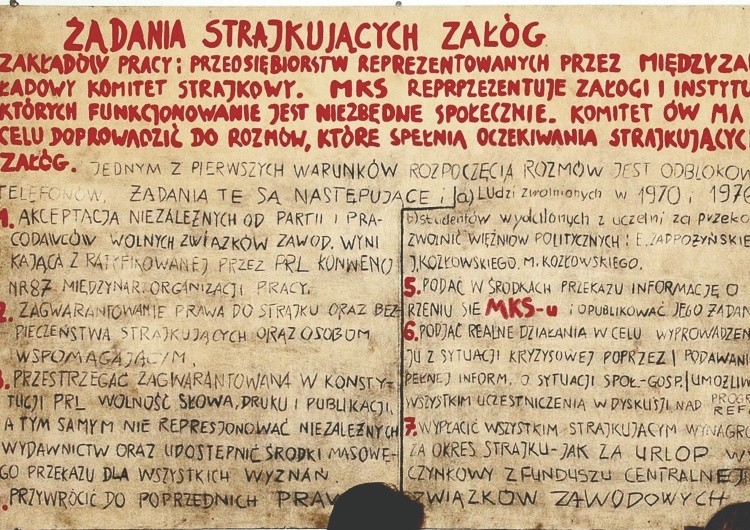 ŻĄDANIA STRAJKUJĄCYCH ZAŁÓG
ZAKŁADÓW PRACY i PRZEDSIĘBIORSTW REPREZENTOWANYCH PRZEZ MIĘDZYZA
ŁADOWY KOMITET STRAJKOWY. MKS REPRPZEZENTUJE ZAŁOGI I INSTYTU
KTÓRYCH FUNKCJONOWANIE JEST NIEZBĘDNE SPOŁECZNIE. KOMITET ÓW MA
CELU DOPROWADZIĆ DO ROZMÓW, KTÓRE SPEŁNIĄ OCZEKIWANIA STRAJKUJĄCYC
ZAŁÓG. JEDNYM Z PIERWSZYCH WARUNKÓW ROZPOCZĘCIA ROZMÓW JEST ODBLOKOW
TELEFONÓW. ŻADANIA TE SĄ NASTĘPUJĄCE:
1. AKCEPTACJA NIEZALEŻNYCH OD PARTII I PRA-
CODAWCÓW WOLNYCH ZWIĄZKÓW ZAWOD. WYNI
KAJĄCA Z RATYFIKOWANEJ PRZEZ PRL KONWENCJ
NR87 MIĘDZYNAR. ORGANIZACJI PRACY.
2. ZAGWARANTOWANIE PRAWA DO STRAJKU ORAZ BEZ-
PIECZEŃSTWA STRAJKUJĄCYCH ORAZ OSOBOM
WSPOMAGAJĄCYM.
3. PRZESTRZEGAĆ ZAGWARANTOWANĄ W KONSTY-
TUCJI PRL WOLNOŚĆ SŁOWA, DRUKU I PUBLIKACJI,
A TYM SAMYM NIE REPRESJONOWAĆ NIEZALEŻNYCH
WYDAWNICTW ORAZ UDOSTĘPNIĆ ŚRODKI MASOWE-
GO PRZEKAZU DLA WSZYSTKICH WYZNAŃ
. PRZYWRÓCIĆ DO POPRZEDNICH PRAW
a) LUdzi zwolnionych w 1970 i 1976
b) studentów wydalonych z uczelni za przeko
ZWOLNIĆ WIĘŹNIÓW POLITYCZNYCH: E. ZADROŻYŃSKIE
J. KOZŁOWSKIEGO. M. KOZŁOWSKIEGO.
5. PODAĆ W ŚRODKACH PRZEKAZU INFORMACJĘ O
RZENIU SIĘ MKS-u i OPUBLIKOWAĆ JEGO ŻĄDAN
6. PODJĄĆ REALNE DZIAŁANIA W CELU WYPROWADZEN
JU Z SYTUACJI KRYZYSOWEJ POPRZEZ | PODAWANI
PEŁNEJ INFORM. O SYTUACJI SPOŁ-GOSP. | UMOŻLIW
WSZYSTKIM UCZESTNICZENIA W DYSKUSJI NAD PROGR
REF
7. WYPŁACIĆ WSZYSTKIM STRAJKUJĄCYM WYNAGRO
ZA OKRES STRAJKU-JAK ZA URLOP WY
CZYNKOWY Z FUNDUSZU CENTRALNEJ
ZWIĄZKÓW ZAWODOWYCH